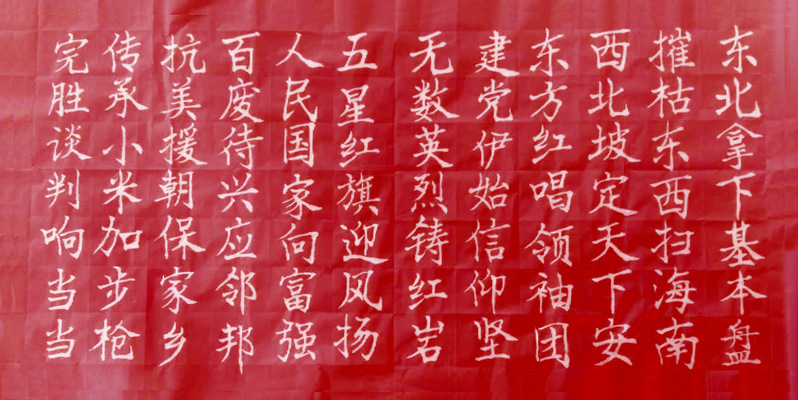 东北拿下基本盘
摧枯东西扫海南
西北坡定天下安
东方红唱领袖团
建党伊始信仰坚
无数英烈铸红岩
五星红旗迎风扬
人民国家向富强
百废待兴应邻邦
抗美援朝保家乡
传承小米加步枪
完胜谈判响当当